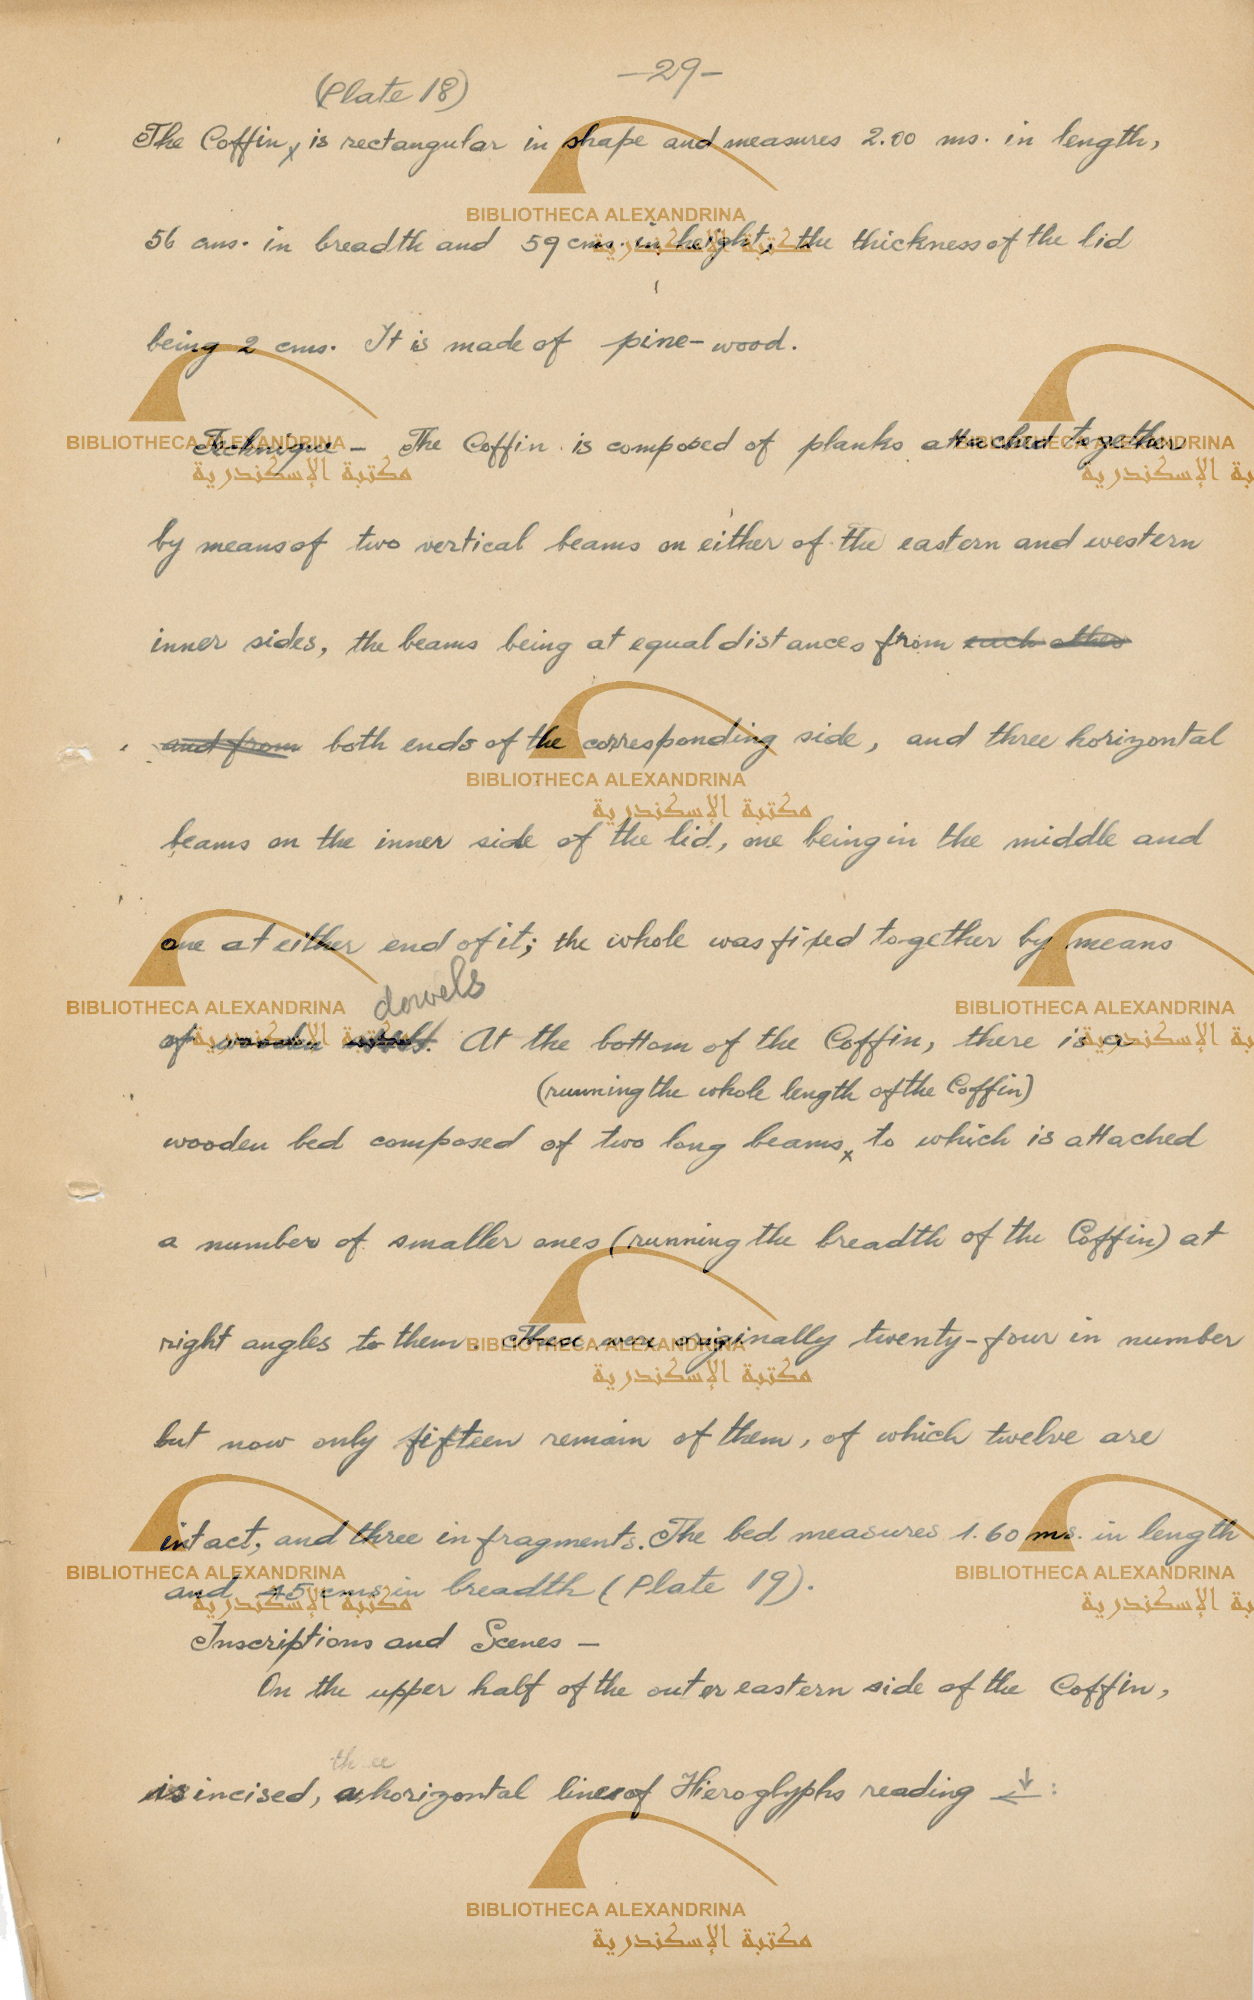 -29-
(Plate 18)
The Coffin x is rectangular in shape and measures 2.00 ms. in length,
56 cms. in breadth and 59 cms. in height, the thickness of the lid
being 2 cms. It is made of pine-wood.
Technique - The Coffin is composed of planks attached together
by means of two vertical beams on either of the eastern and western
inner sides, the beams being at equal distances from each other
and from both ends of the corresponding side, and three horizontal
beams on the inner side of the lid, one being in the middle and
one at either end of it; the whole was fixed together by means
dowels
of wooden At the bottom of the Coffin, there is a
(running the whole length of the Coffin)
wooden bed composed of two long beams x to which is attached
a number of smaller ones (running the breadth of the Coffin) at
right angles to them. These were originally twenty-four in number
but now only fifteen remain of them, of which twelve are
intact, and three in fragments. The bed measures 1.60 ms. in length
and 45 cms in breadth (Plate 19).
Inscriptions and Scenes -
On the upper half of the outer eastern side of the Coffin,
three
is incised, a horizontal lines of Hieroglyphs reading ↓← :
BIBLIOTHECA ALEXANDRINA
مكتبة الإسكندرية